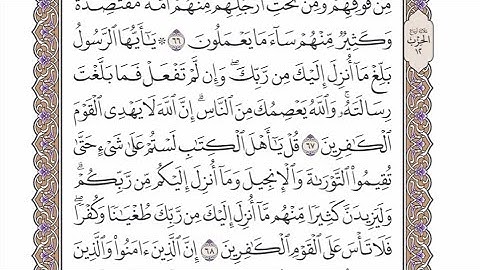 مِن فَوْقِهِمْ وَمِن تَحْتِ أَرْجُلِهِم مِّنْهُمْ أُمَّةٌ مُّقْتَصِدَةٌ
وَكَثِيرٌ مِّنْهُمْ سَآءَ مَا يَعْمَلُونَ ٦٦ ۞ يَٰٓأَيُّهَا ٱلرَّسُولُ
بَلِّغْ مَآ أُنزِلَ إِلَيْكَ مِن رَّبِّكَۖ وَإِن لَّمْ تَفْعَلْ فَمَا بَلَّغْتَ
رِسَالَتَهُۥۚ وَٱللَّهُ يَعْصِمُكَ مِنَ ٱلنَّاسِۗ إِنَّ ٱللَّهَ لَا يَهْدِى ٱلْقَوْمَ
ٱلْكَٰفِرِينَ ٦٧ قُلْ يَٰٓأَهْلَ ٱلْكِتَٰبِ لَسْتُمْ عَلَىٰ شَىْءٍ حَتَّىٰ
تُقِيمُوا۟ ٱلتَّوْرَىٰةَ وَٱلْإِنجِيلَ وَمَآ أُنزِلَ إِلَيْكُم مِّن رَّبِّكُمْۗ
وَلَيَزِيدَنَّ كَثِيرًا مِّنْهُم مَّآ أُنزِلَ إِلَيْكَ مِن رَّبِّكَ طُغْيَٰنًا وَكُفْرًاۖ
فَلَا تَأْسَ عَلَى ٱلْقَوْمِ ٱلْكَٰفِرِينَ ٦٨ إِنَّ ٱلَّذِينَ ءَامَنُوا۟ وَٱلَّذِينَ
الحزب
١٢